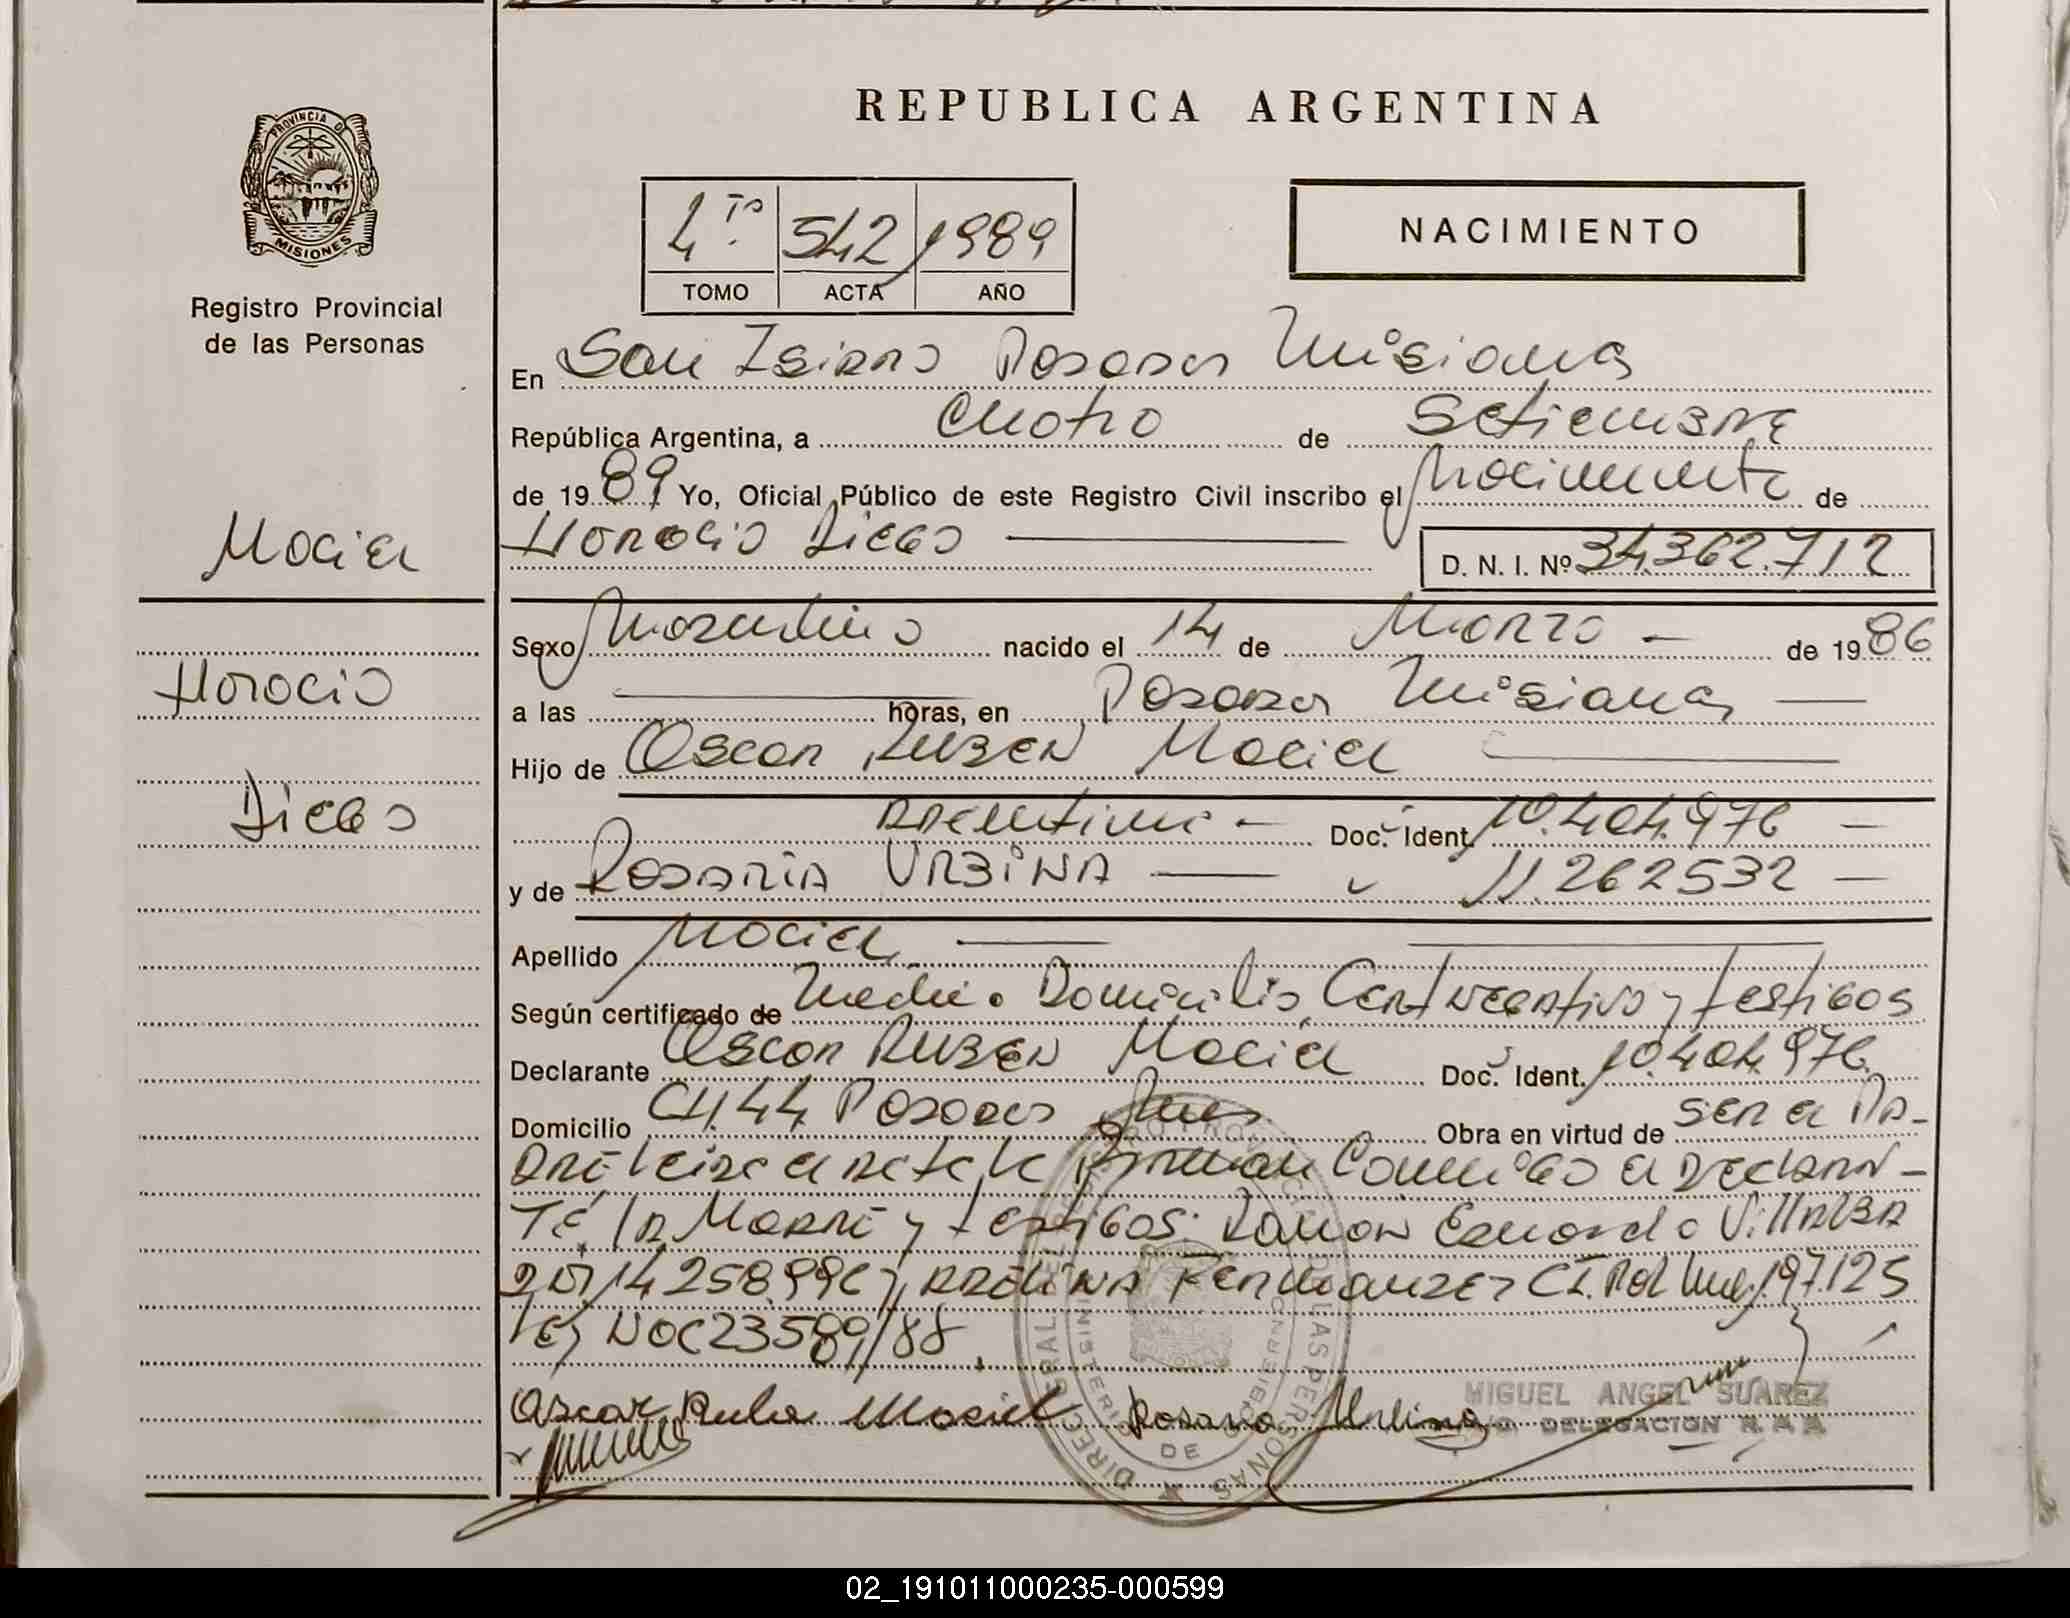 REPUBLICA ARGENTINA
PROVINCIA DE
MISIONES
Registro Provincial
de las Personas
4to. 542 1989
TOMO ACTA AÑO
NACIMIENTO
En San Isidro Posadas Misiones
República Argentina, a Cuatro de Setiembre
de 1989 Yo, Oficial Público de este Registro Civil inscribo el Nacimiento de
Maciel
Horacio Diego
D. N. I. Nº 34.362.712
Sexo Masculino nacido el 14 de Marzo - de 1986
Horacio
a las horas, en Posadas Misiones
Hijo de Oscar Ruben Maciel
Diego
Argentino - Doc. Ident. 10.404.976 -
y de Rosaria URBINA 11.262532 -
Apellido Maciel
Según certificado de Medico Domicilio, Cert Negativo y testigos
Declarante Oscar Ruben Maciel Doc. Ident. 10.404.976
Domicilio CH.44 Posadas Mnes Obra en virtud de ser el Pa-
dre leida el acta la firman Conmigo el Declaran-
te la Madre y testigos: Ramon Eduardo Villalba
DNI 14.258.996 y Fernandez CI. Pol Mnes 197.125
Ley NOC 23589/88
Oscar Ruben Maciel Rosaria Urbina
MIGUEL ANGEL SUAREZ
DELEGACION
02_191011000235-000599